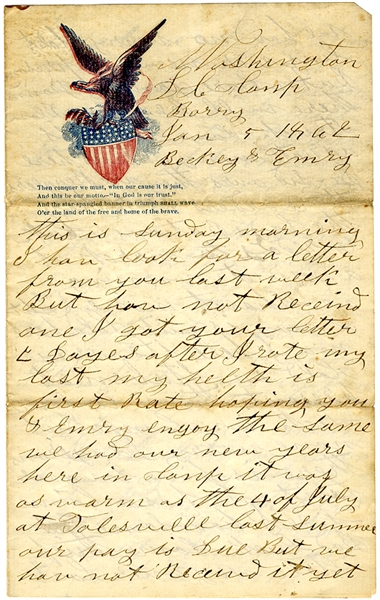 Washington
D C Camp
Barry
Jan 5 1862
Beckey & Emry
Then conquer we must, when our cause it is just,
And this be our motto,—"In God is our trust."
And the star-spangled banner in triumph SHALL wave
O'er the land of the free and home of the brave.
this is sunday morning
I hav look for a letter
from you last week
But hav not Receind
one I got your letter
2 Dayes after I rote my
last my helth is
first Rate hoping you
& Emry enjoy the same
we had our new years
here in Camp it was
as warm as the 4 of July
at Dolesville last summer
our pay is Due But we
hav not Receind it yet